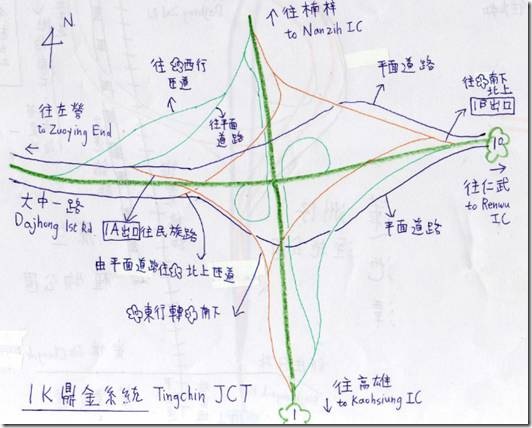 N
↑往楠梓
to Nanzih IC
往 西行
匝道
平面道路
往 南下
北上
1B出口
往平面
道路
往左營
to Zuoying End
10
大中一路
Dajhong 1st Rd.
1A出口 往民族路
往仁武
to Renwu
IC
平面道路
由平面道路往 北上匝道
東行轉 南下
1K鼎金系統 Tingchin JCT
往高雄
↓ to Kaohsiung IC
1